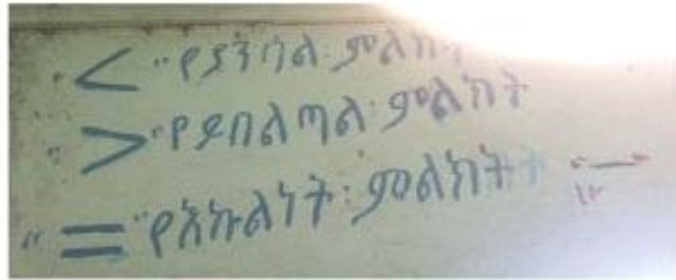 "<" "የያንሳል ምልክት
">" "የይበልጣል ምልክት
"=" "የእኩልነት ምልክት "—"